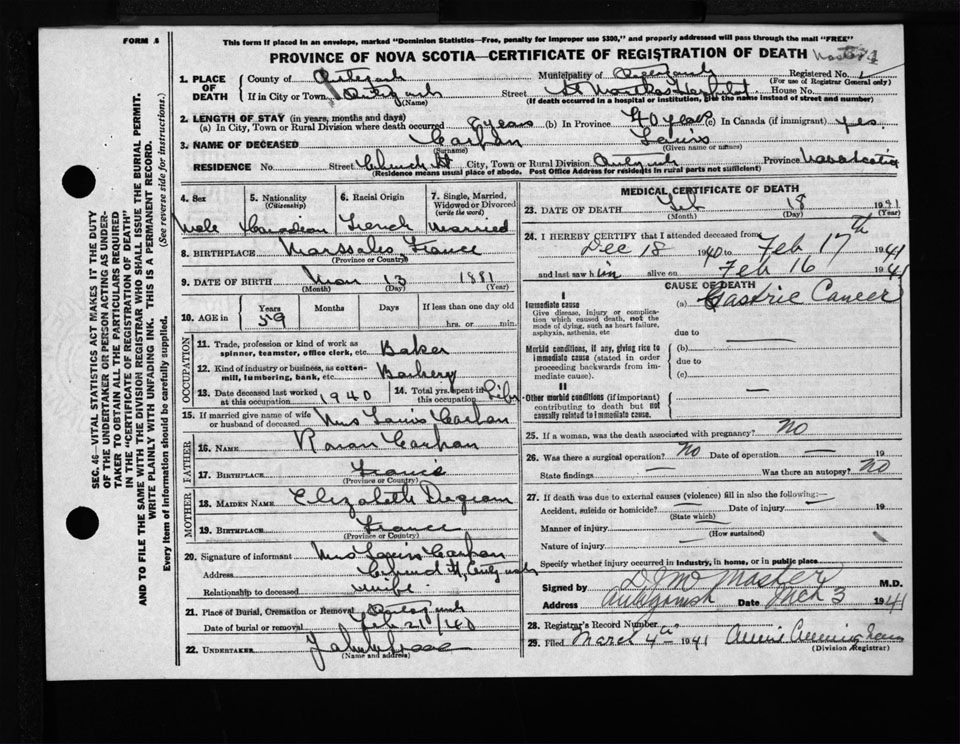 FORM 4
This form if placed in an envelope, marked "Dominion Statistics—Free, penalty for improper use $300," and properly addressed will pass through the mail "FREE"
PROVINCE OF NOVA SCOTIA—CERTIFICATE OF REGISTRATION OF DEATH
1. PLACE OF DEATH
County of Antigonish Municipality of Antigonish Registered No.
(For use of Registrar General only)
If in City or Town Antigonish Street St Marthas Hospital House No.
(Name) (If death occurred in a hospital or institution, give the name instead of street and number)
2. LENGTH OF STAY (in years, months and days)
(a) In City, Town or Rural Division where death occurred years (b) In Province 40 years (c) In Canada (if immigrant) yes.
3. NAME OF DECEASED Louis
(Surname) (Given name or names)
RESIDENCE No. Street Church St City, Town or Rural Division Antigonish Province Nova Scotia
(Residence means usual place of abode. Post Office Address for residents in rural parts not sufficient)
4. Sex
Male
5. Nationality
(Citizenship)
Canadian
6. Racial Origin
French
7. Single, Married, Widowed or Divorced
(write the word)
Married
8. BIRTHPLACE Marssales, France
(Province or Country)
9. DATE OF BIRTH 13 1881
(Month) (Day) (Year)
10. AGE in Years Months Days If less than one day old
59 hrs. or min.
OCCUPATION
11. Trade, profession or kind of work as spinner, teamster, office clerk, etc. Baker
12. Kind of industry or business, as cotton-mill, lumbering, bank, etc. Bakery
13. Date deceased last worked at this occupation 1940
14. Total yrs. spent in this occupation Life
15. If married give name of wife or husband of deceased Mrs Louis
FATHER
16. NAME
17. BIRTHPLACE France
(Province or Country)
MOTHER
18. MAIDEN NAME Elizabeth
19. BIRTHPLACE France
(Province or Country)
20. Signature of informant Mrs Louis
Address Church St, Antigonish
Relationship to deceased wife
21. Place of Burial, Cremation or Removal Antigonish
Date of burial or removal Feb 21/40
22. UNDERTAKER
(Name and address)
MEDICAL CERTIFICATE OF DEATH
23. DATE OF DEATH Feb 18 1941
(Month) (Day)
24. I HEREBY CERTIFY that I attended deceased from
Dec 18 1940 to Feb 17th 1941
and last saw him alive on Feb 16 1941
CAUSE OF DEATH
I
Immediate cause (a) Gastric Cancer
Give disease, injury or complication which caused death, not the mode of dying, such as heart failure, asphyxia, asthenia, etc
due to
Morbid conditions, if any, giving rise to immediate cause (stated in order proceeding backwards from immediate cause).
(b)
due to
(c)
II
Other morbid conditions (if important) contributing to death but not causally related to immediate cause.
25. If a woman, was the death associated with pregnancy? No
26. Was there a surgical operation? No Date of operation — 19
State findings — Was there an autopsy? No
27. If death was due to external causes (violence) fill in also the following:—
Accident, suicide or homicide? — Date of injury — 19
(State which)
Manner of injury —
(How sustained)
Nature of injury —
Specify whether injury occurred in industry, in home, or in public place
Signed by M.D.
Address Antigonish Date Mch 3 1941
28. Registrar's Record Number
29. Filed March 4th 1941
(Division Registrar)
SEC. 46—VITAL STATISTICS ACT MAKES IT THE DUTY
OF THE UNDERTAKER OR PERSON ACTING AS UNDER-
TAKER TO OBTAIN ALL THE PARTICULARS REQUIRED
IN THE "CERTIFICATE OF REGISTRATION OF DEATH"
AND TO FILE THE SAME WITH THE DIVISION REGISTRAR WHO SHALL ISSUE THE BURIAL PERMIT.
WRITE PLAINLY WITH UNFADING INK. THIS IS A PERMANENT RECORD.
Every item of information should be carefully supplied. (See reverse side for instructions.)